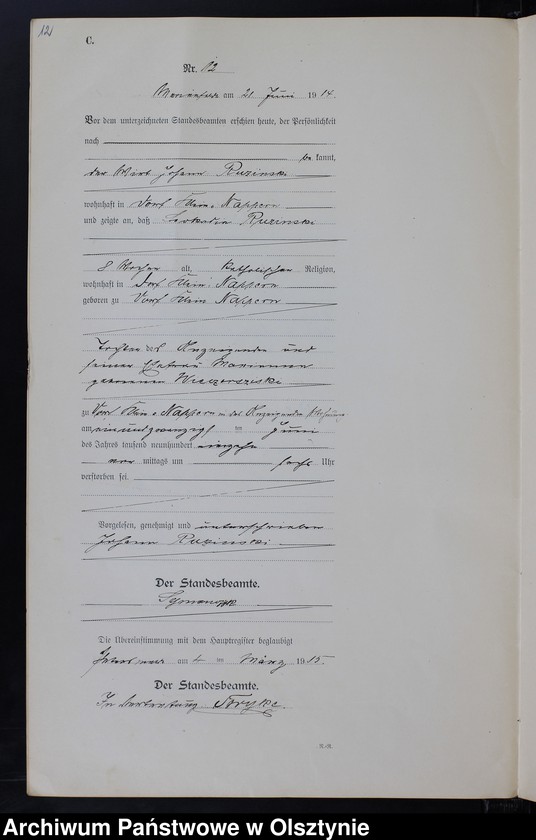 12
C.
Nr. 12
am 21 Juni 1914.
Vor dem unterzeichneten Standesbeamten erschien heute, der Persönlichkeit
nach
be kannt,
der Wirt Johann Ruzinski
wohnhaft in Dorf Klein Nappern
und zeigte an, daß Leokadia Ruzinski
8 Wochen alt, katholischer Religion,
wohnhaft in Dorf Klein Nappern
geboren zu Dorf Klein Nappern
Tochter des Anzeigenden und
seiner Ehefrau Marianna
geborenen
zu Dorf Klein Nappern in des Anzeigenden Wohnung
am einundzwanzigsten Juni
des Jahres tausend neunhundert vierzehn
vor mittags um sechs Uhr
verstorben sei.
Vorgelesen, genehmigt und unterschrieben
Johann Ruzinski
Der Standesbeamte.
Die Übereinstimmung mit dem Hauptregister beglaubigt
am 4 ten März 1915.
Der Standesbeamte.
In Vertretung
R.-R.
Archiwum Państwowe w Olsztynie